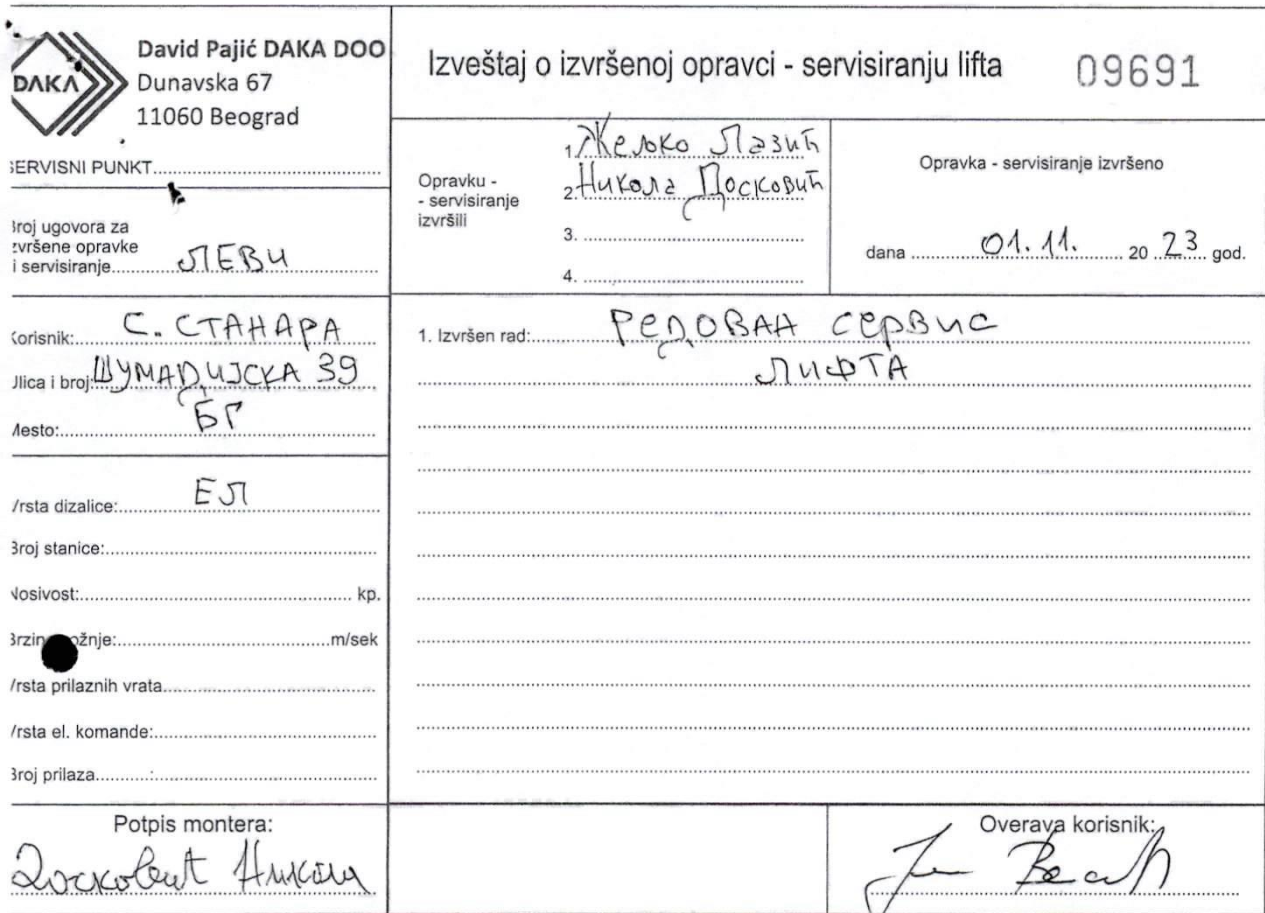 DAKA
David Pajić DAKA DOO
Dunavska 67
11060 Beograd
SERVISNI PUNKT
Izveštaj o izvršenoj opravci - servisiranju lifta
09691
Broj ugovora za
izvršene opravke
i servisiranje ЛЕВИ
Opravku -
- servisiranje
izvršili
1. Жељко Лазић
2. Никола Досковић
3.
4.
Opravka - servisiranje izvršeno
dana 01.11. 2023 god.
Korisnik: С. СТАНАРА
Ulica i broj: ШУМАДИЈСКА 39
Mesto: БГ
Vrsta dizalice: ЕЛ
Broj stanice:
Nosivost: kp.
m/sek
Vrsta prilaznih vrata
Vrsta el. komande:
Broj prilaza
1. Izvršen rad: РЕДОВАН СЕРВИС
ЛИФТА
Potpis montera:
Досковић Никола
Overava korisnik: